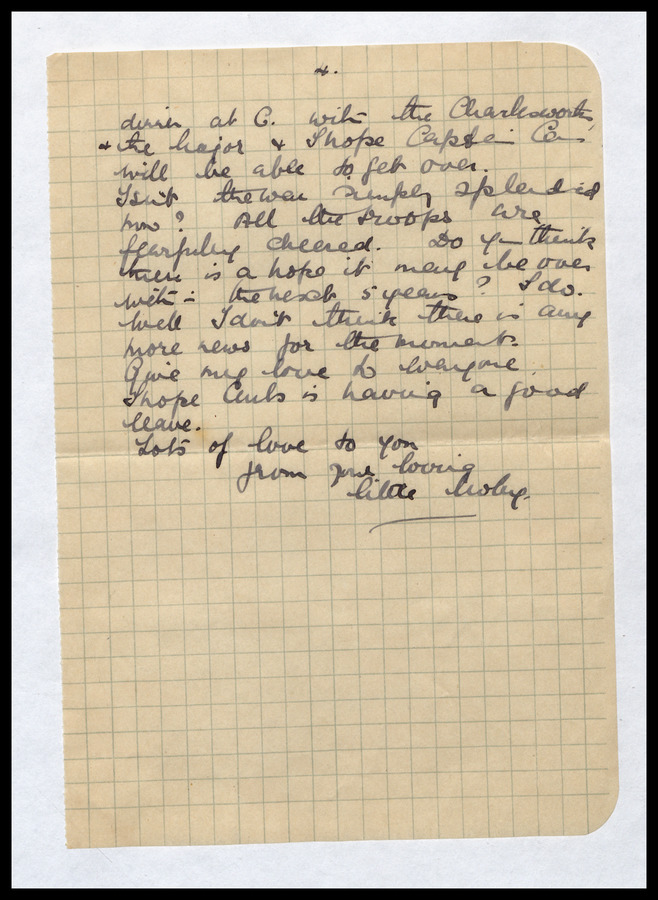 4.
dinner at C. with the Charlesworths
& the Major & I hope Captain
will be able to get over.
Isn't the war simply splendid
now? All the troops are
fearfully cheered. Do you think
there is a hope it may be over
within the next 5 years? I do.
Well I don't think there is any
more news for the moment.
Give my love to everyone
I hope is having a good
leave.
Lots of love to you
from your loving
little